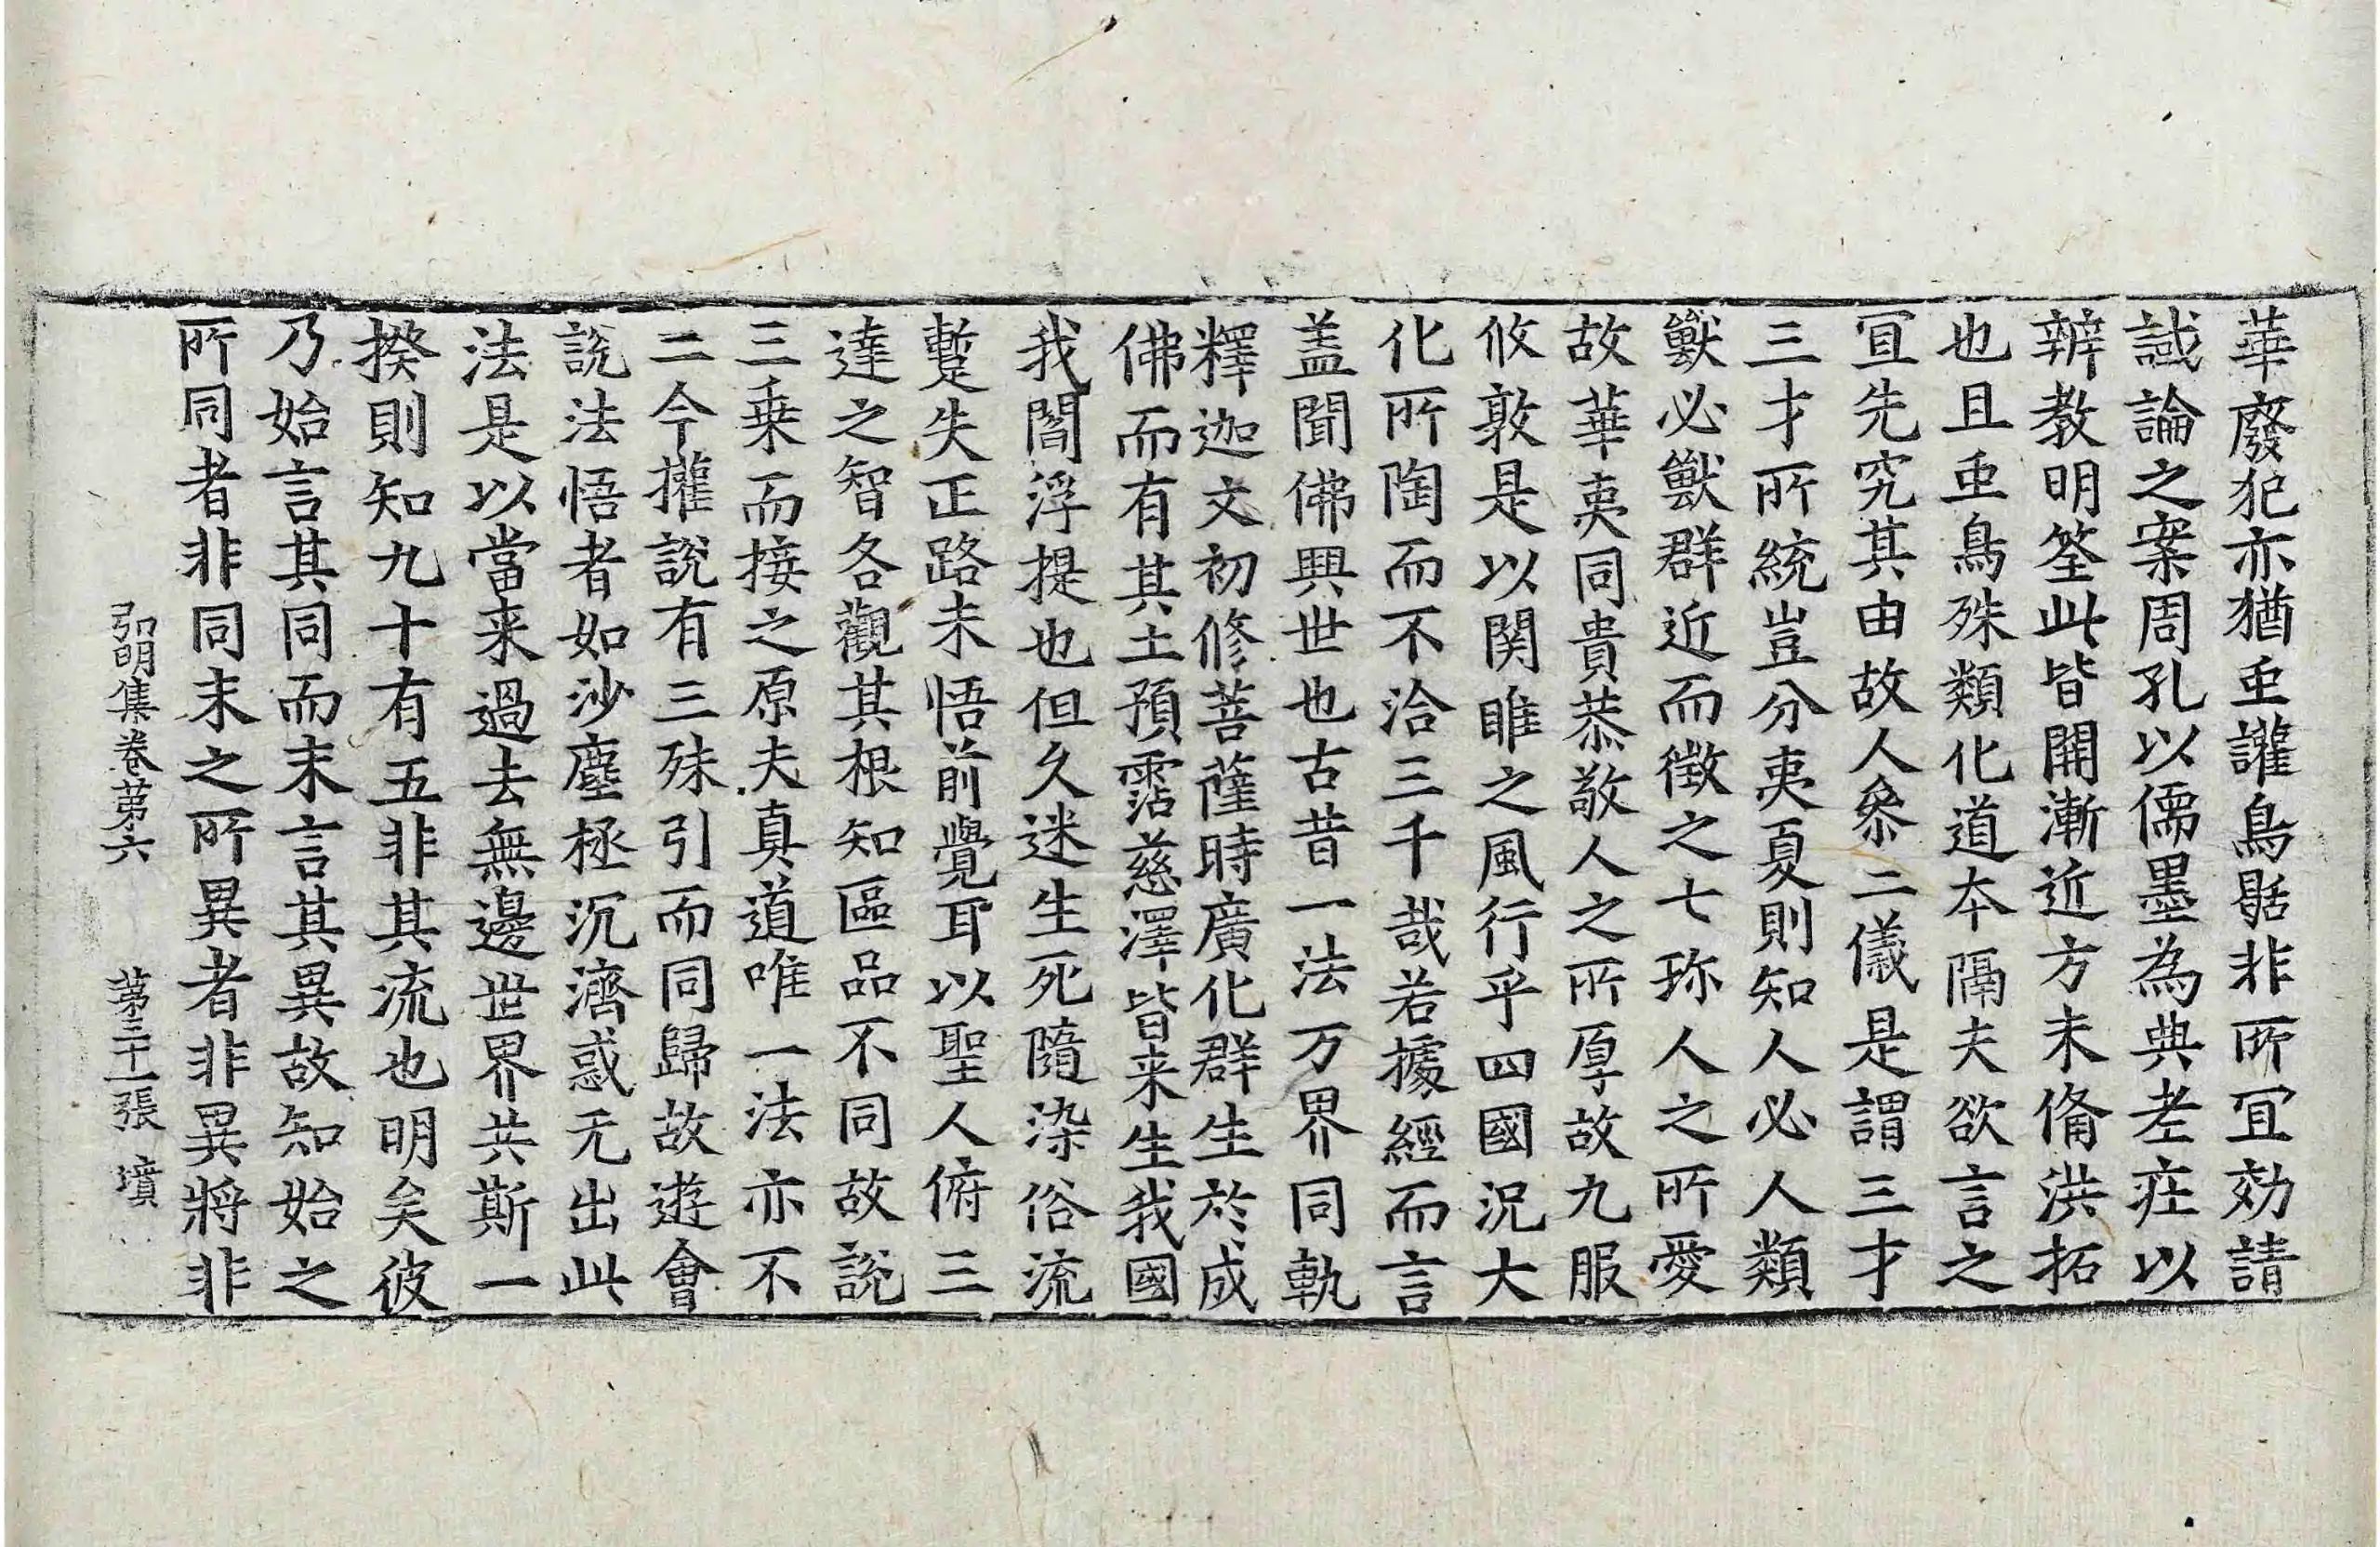 華廢犯亦猶䖝讙鳥聒非所冝効請
試論之案周孔以儒墨為典老庄以
辯教明筌此皆開漸近方未俻洪拓
也且䖝鳥殊類化道夲隔夫欲言之
冝先究其由故人叅二儀是謂三才
三才所統豈分夷夏則知人必人類
獸必獸群近而徴之七珎人之所愛
故華夷同貴恭敬人之所厚故九服
攸敦是以関雎之風行乎四國況大
化所陶而不洽三千哉若據經而言
盖聞佛興世也古昔一法万界同軌
釋迦文初修菩薩時廣化群生於成
佛而有其土預霑慈澤皆来生我國
我閻浮提也但久迷生死隨染俗流
蹔失正路未悟前覺耳以聖人俯三
達之智各觀其根知區品不同故說
三乗而接之原夫真道唯一法亦不
二今權說有三殊引而同歸故遊會
說法悟者如沙塵拯沉濟惑无出此
法是以當来過去無邊世界共斯一
揆則知九十有五非其流也明矣彼
乃始言其同而末言其異故知始之
所同者非同末之所異者非異將非
弘明集卷苐六　苐三十一張　墳